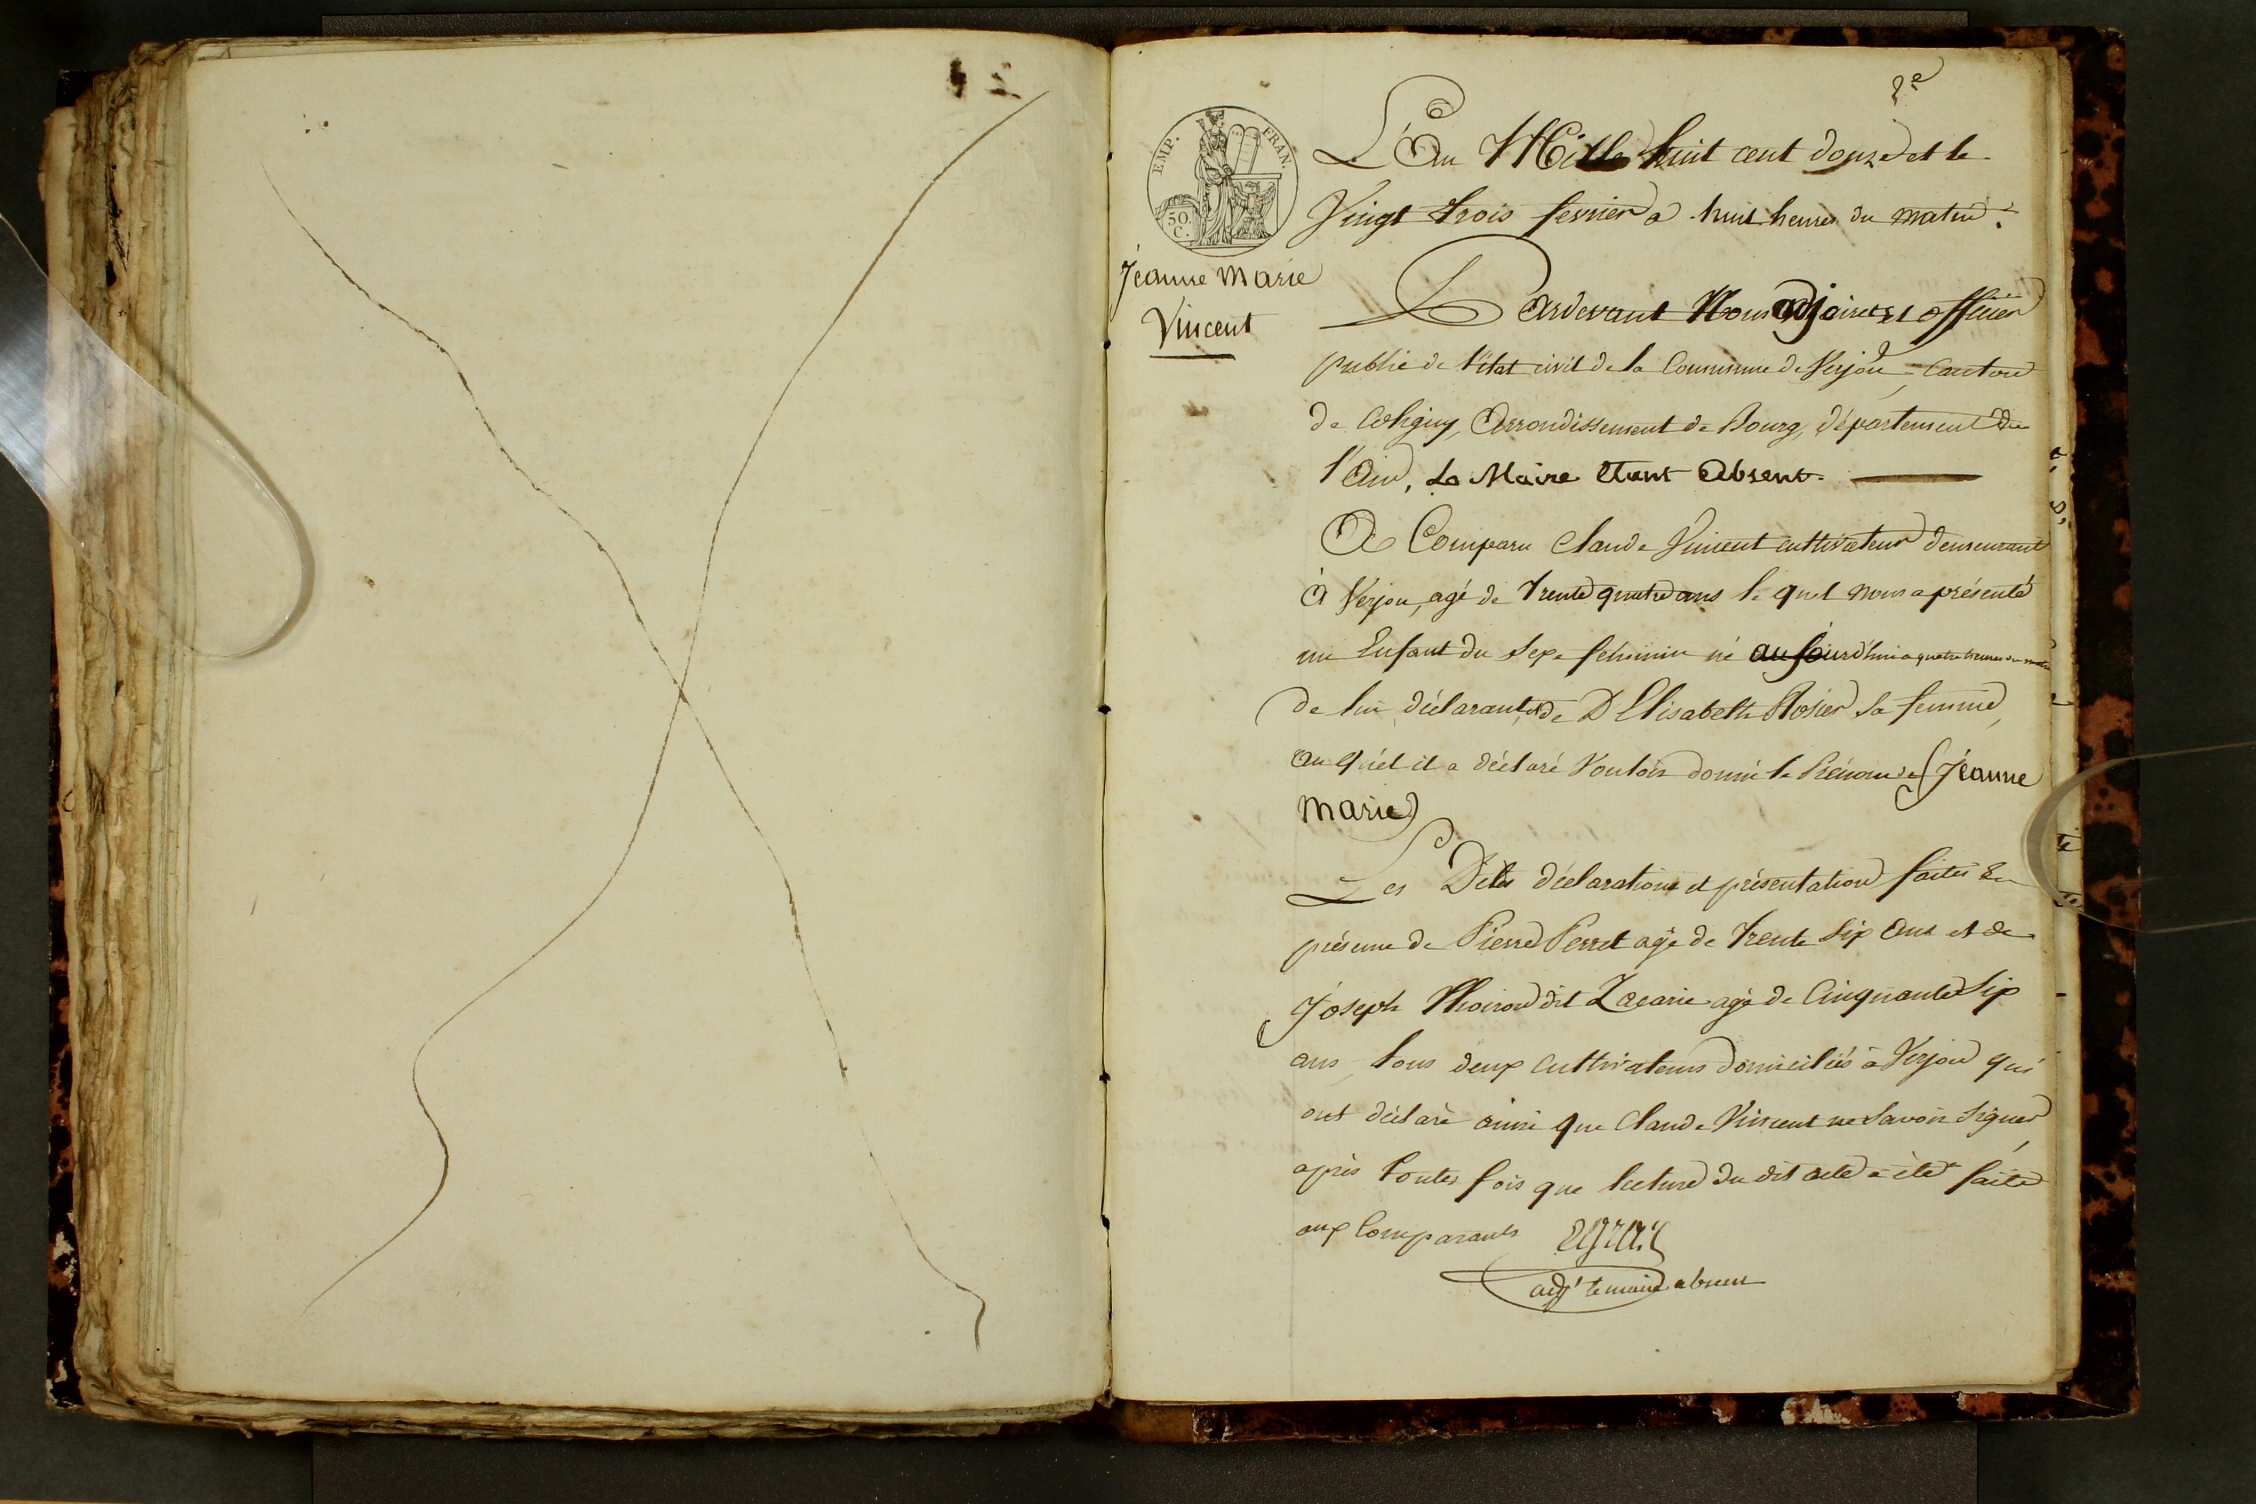 2e
L'An Mille huit cent douze et le
Vingt trois fevrier a huit heures du matin.
EMP. FRAN.
50 C.
Jeanne Marie
Vincent
Pardevant Nous adjoint et officier
public de l'état civil de la Commune de Verjon, Canton
de Coligny, Arrondissement de Bourg, département de
l'Ain, Le Maire Etant Absent.
A Comparu Claude Vincent cultivateur demeurant
à Verjon, agé de trente quatre ans le quel nous a présenté
un Enfant du Sexe feminin né aujourd'hui a quatre heures du matin
de lui déclarant, et de D'Elisabeth Rosier sa femme,
au quél il a déclaré Vouloir donné le Prénom de (Jeanne
Marie)
Les Dites déclarations et présentation faites En
présence de Pierre Perret agé de trente Six ans et de
Joseph Moiron dit Zacarie agé de Cinquante Six
ans, tous deux cultivateurs domiciliés à Verjon qui
ont déclaré ainsi que Claude Vincent ne Savoir Signer,
après toutes fois que lecture du dit acte a été faite
aux Comparants
adjt le maire absent